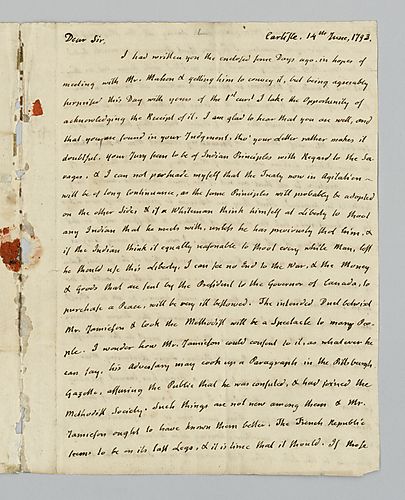 Dear Sir, Carlisle. 14th June, 1793.
I had written you the enclosed some Days ago. in hopes of
meeting with Mr. Mahon & getting him to convey it, but being agreeably
surprised this Day with yours of the 1st curt I take the Opportunity of
acknowledging the Receipt of it. I am glad to hear that you are well, and
that you are found in your Judgment, tho' your Letter rather makes it
doubtful. Your Jury seem to be of Indian Principles with Regard to the Sa-
vages. & I can not persuade myself that the Treaty now in Agitation
will be of long continuance, as the same Principles will probably be adopted
on the other Side; & if a Whiteman think himself at Liberty to shoot
any Indian that he meets with, unless he has previously shot him, &
if the Indian think it equally reasonable to shoot every white Man, lest
he should use this Liberty, I can see no End to the War, & the Money
& Goods that are sent by the President to the Governor of Canada, to
purchase a Peace, will be very ill bestowed. The intended Duel betwixt
Mr. Jamieson & Cook the Methodist will be a Spectacle to many Peo-
ple. I wonder how Mr. Jamieson could consent to it, as whatever he
can say, his Adversary may cook up a Paragraph in the Pittsburgh
Gazette, assuring the Public that he was confuted, & had joined the
Methodist Society. Such things are not new among them & Mr.
Jamieson ought to have known them better. The French Republic
seems to be on its last Legs, & it is time that it should. If those